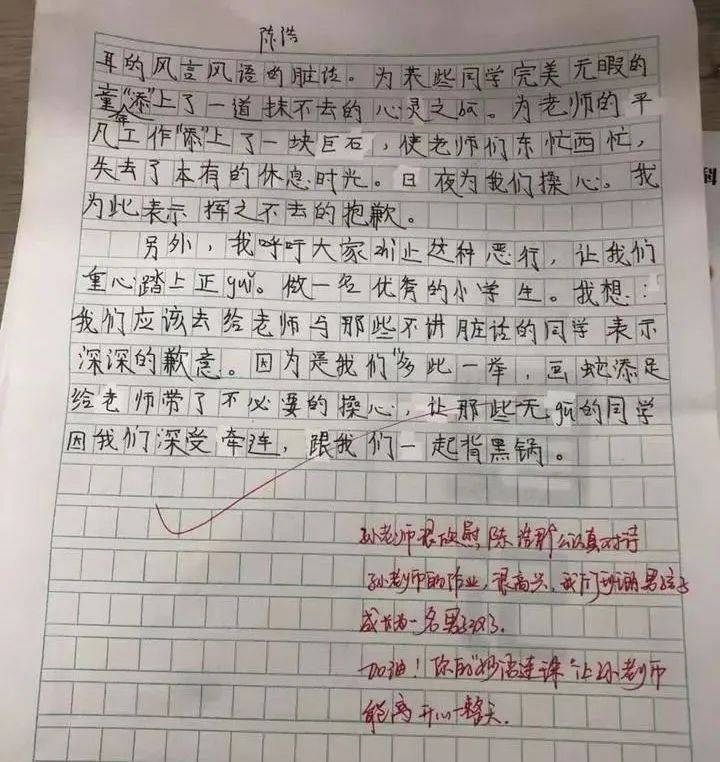 陈浩
耳的风言风语的脏话。为某些同学完美无暇的
童年“添”上了一道抹不去的心灵之疤。为老师的平
凡工作“添”上了一块巨石，使老师们东忙西忙，
失去了本有的休息时光。日夜为我们操心。我
为此表示挥之不去的抱歉。
另外，我呼吁大家zhi止这种恶行，让我们
重心踏上正guǐ。做一名优秀的小学生。我想：
我们应该去给老师与那些不讲脏话的同学表示
深深的歉意。因为是我们“多此一举，画蛇添足
给老师带了不必要的操心，让那些无gū的同学
因我们深受牵连，跟我们一起背黑锅。
孙老师很欣慰，陈浩那么认真对待
孙老师的作业，很高兴，我们班的男孩子
成长为一名男子汉了.
加油！你的“妙语连珠”让孙老师
能高开心一整天.